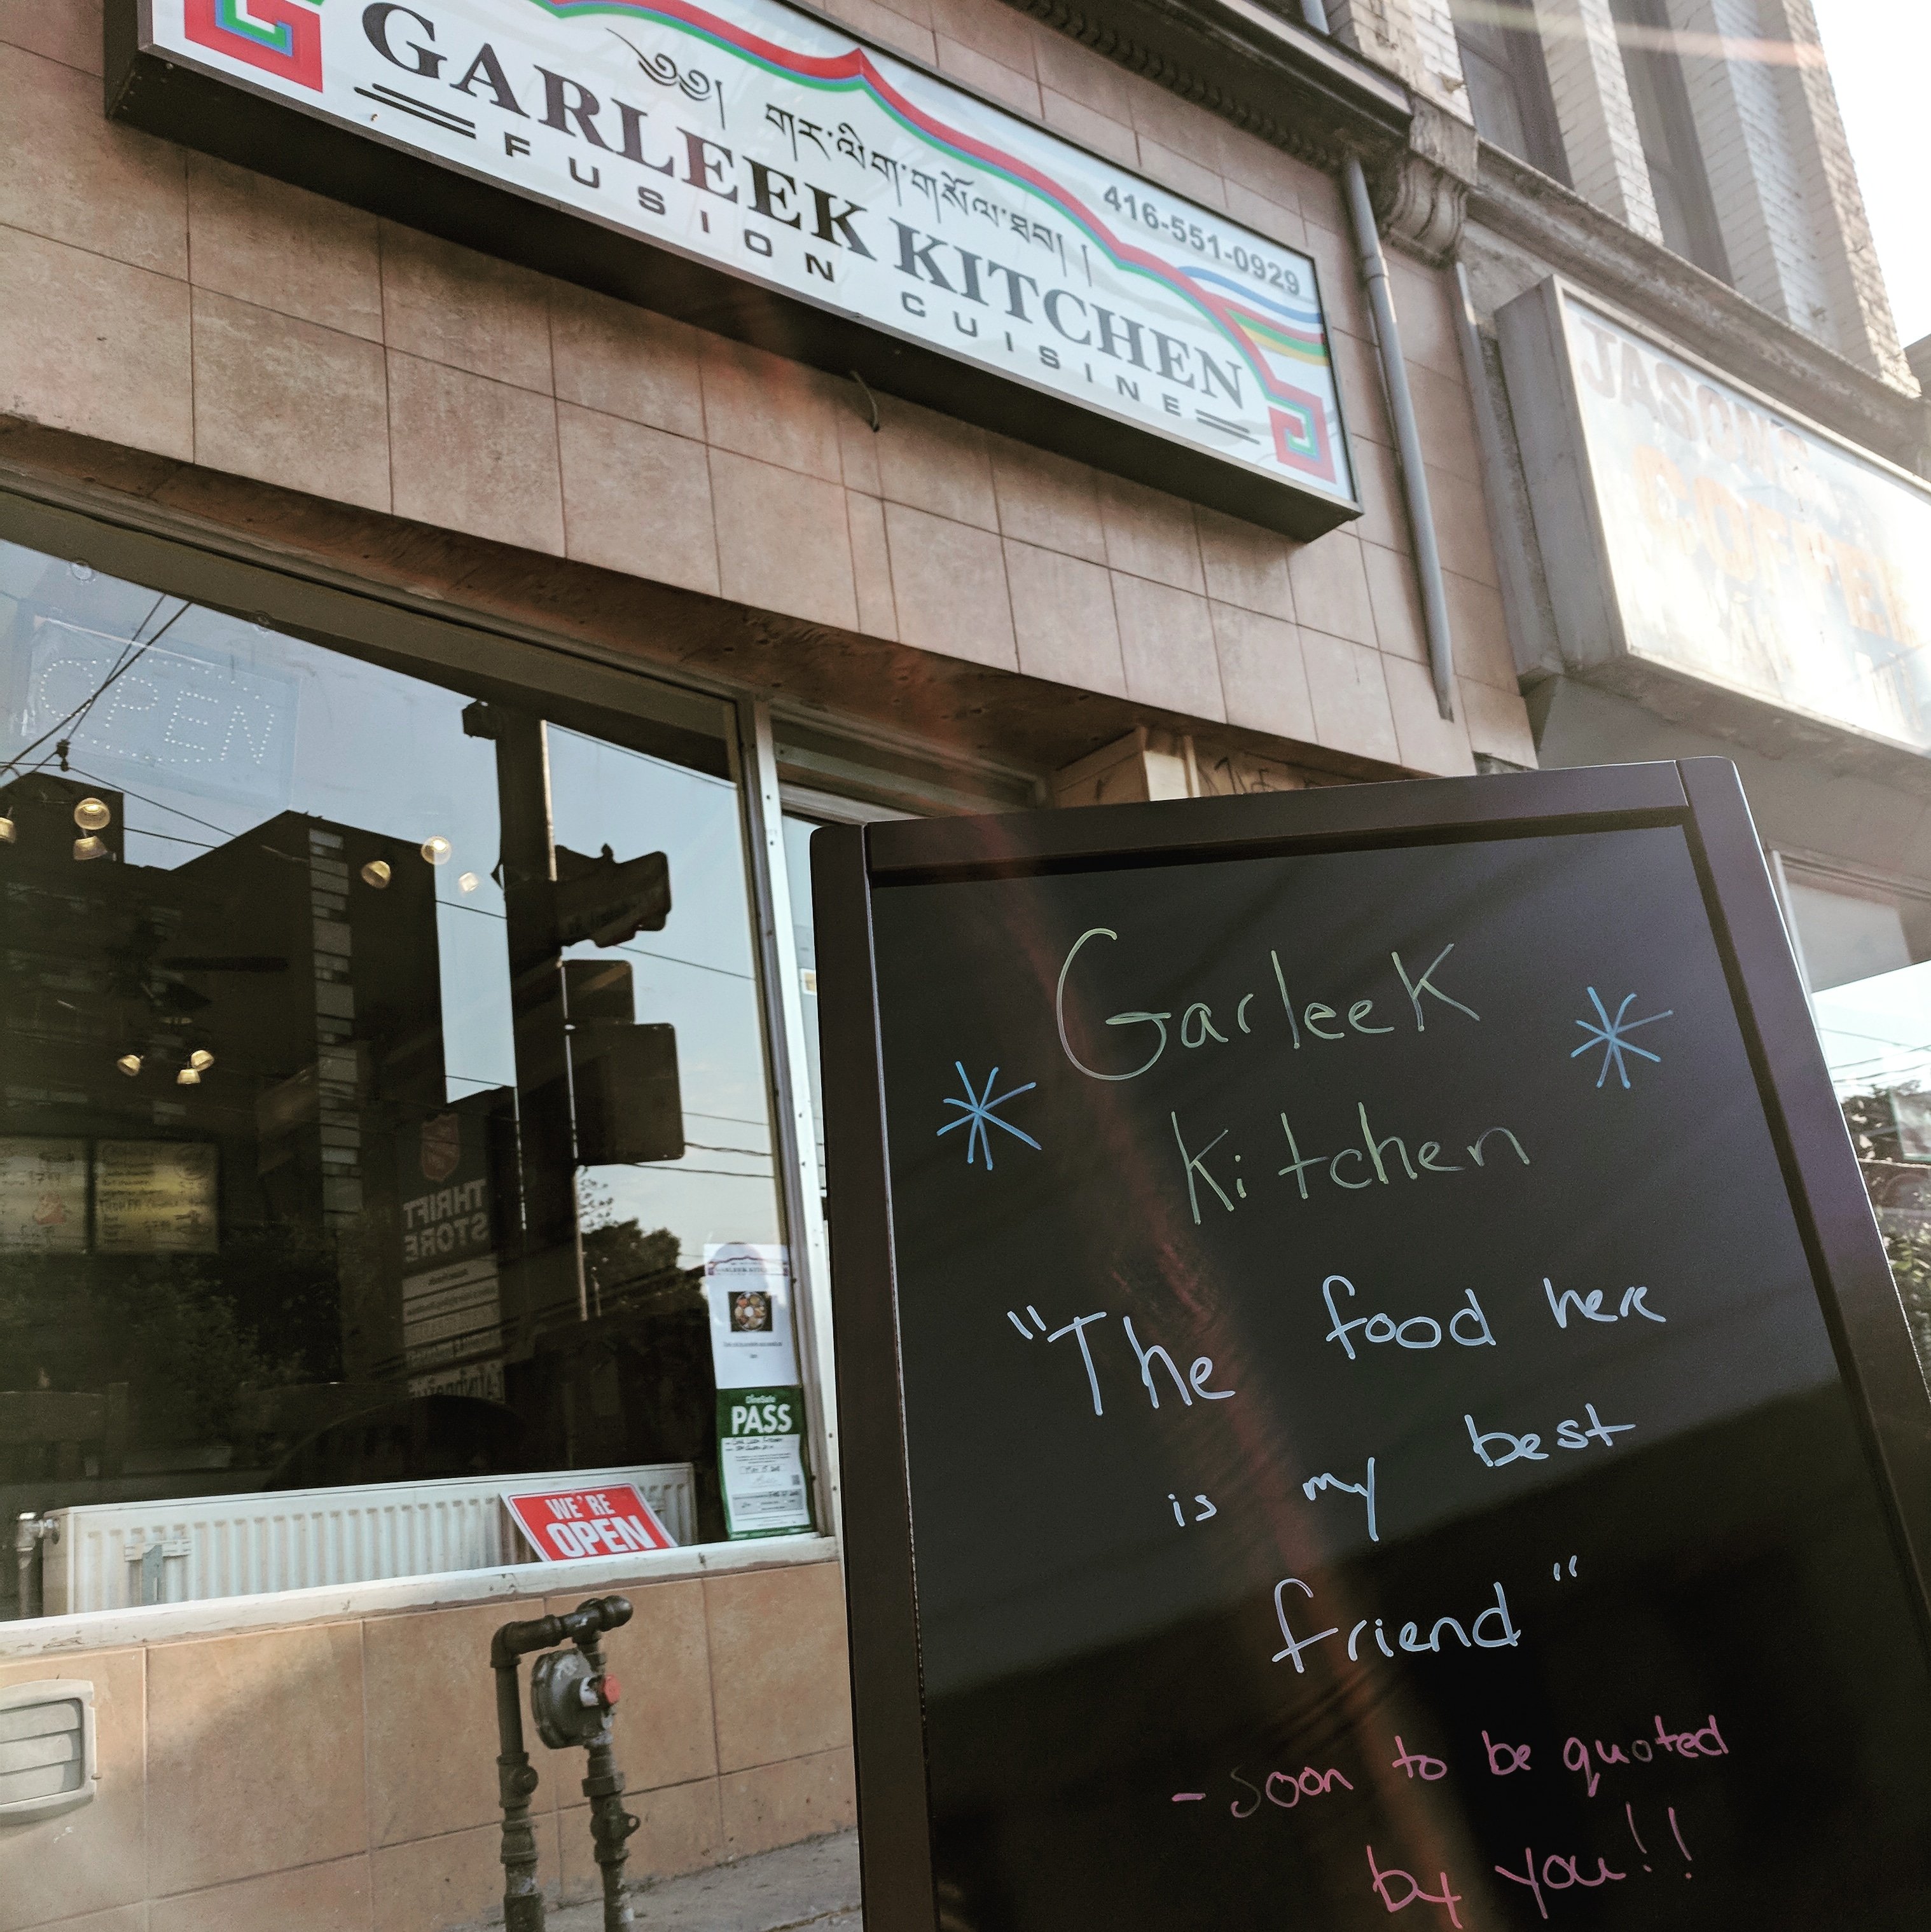 GARLEEK KITCHEN
༄༅། གར་ལིག་གསོལ་ཐབ། །
416-551-0929
FUSION CUISINE
JASON'S
COFFEE
OPEN
THRIFT
STORE
GARLEEK KITCHEN
DineSafe
PASS
WE'RE
OPEN
Garleek
Kitchen
"The food here
is my best
friend"
- Soon to be quoted
by you!!